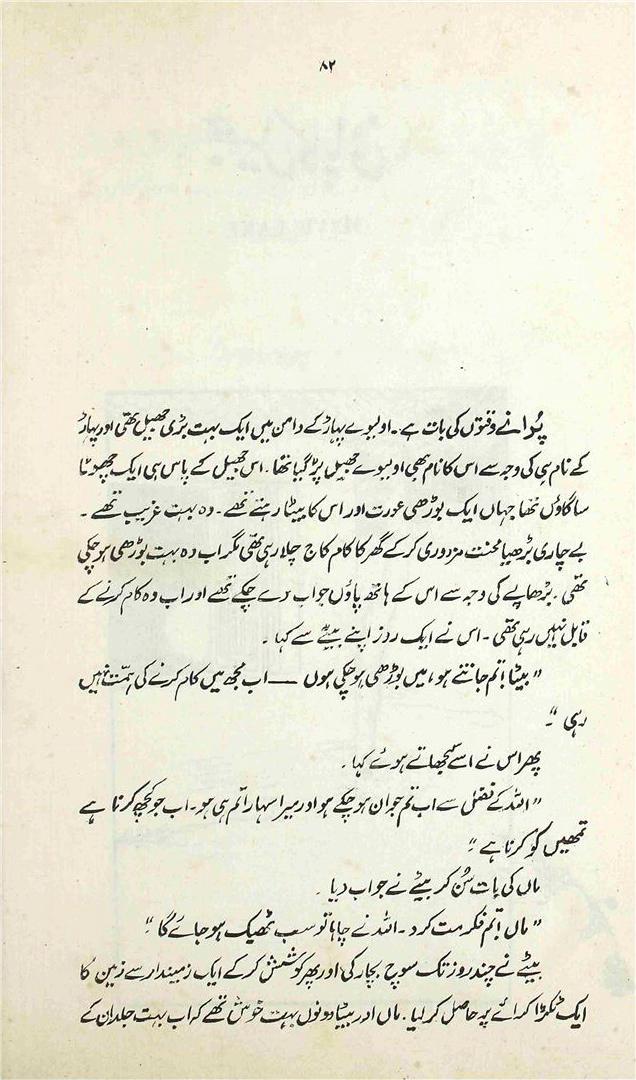 ۸۲
پُرانے وقتوں کی بات ہے۔ اولیوے پہاڑ کے دامن میں ایک بہت بڑی جھیل تھی اور پہاڑ
کے نام ہی کی وجہ سے اس کا نام بھی اولیوے جھیل پڑ گیا تھا۔ اس جھیل کے پاس ہی ایک چھوٹا
سا گاؤں تھا جہاں ایک بوڑھی عورت اور اس کا بیٹا رہتے تھے۔ وہ بہت غریب تھے۔
بے چاری بڑھیا محنت مزدوری کر کے گھر کا کام کاج چلا رہی تھی مگر اب وہ بہت بوڑھی ہو چکی
تھی۔ بڑھاپے کی وجہ سے اس کے ہاتھ پاؤں جواب دے چکے تھے اور اب وہ کام کرنے کے
قابل نہیں رہی تھی۔ اس نے ایک روز اپنے بیٹے سے کہا۔
"بیٹا! تم جانتے ہو، میں بوڑھی ہو چکی ہوں — اب مجھ میں کام کرنے کی ہمّت نہیں
رہی"۔
پھر اس نے اسے سمجھاتے ہوئے کہا۔
"اللہ کے فضل سے اب تم جوان ہو چکے ہو اور میرا سہارا تم ہی ہو۔ اب جو کچھ کرنا ہے
تمھیں کو کرنا ہے"۔
ماں کی بات سُن کر بیٹے نے جواب دیا۔
"ماں! تم فکر مت کرو۔ اللہ نے چاہا تو سب ٹھیک ہو جائے گا"۔
بیٹے نے چند روز تک سوچ بچار کی اور پھر کوشش کر کے ایک زمیندار سے زمین کا
ایک ٹکڑا کرائے پہ حاصل کر لیا۔ ماں اور بیٹا دونوں بہت خوش تھے کہ اب بہت جلد ان کے